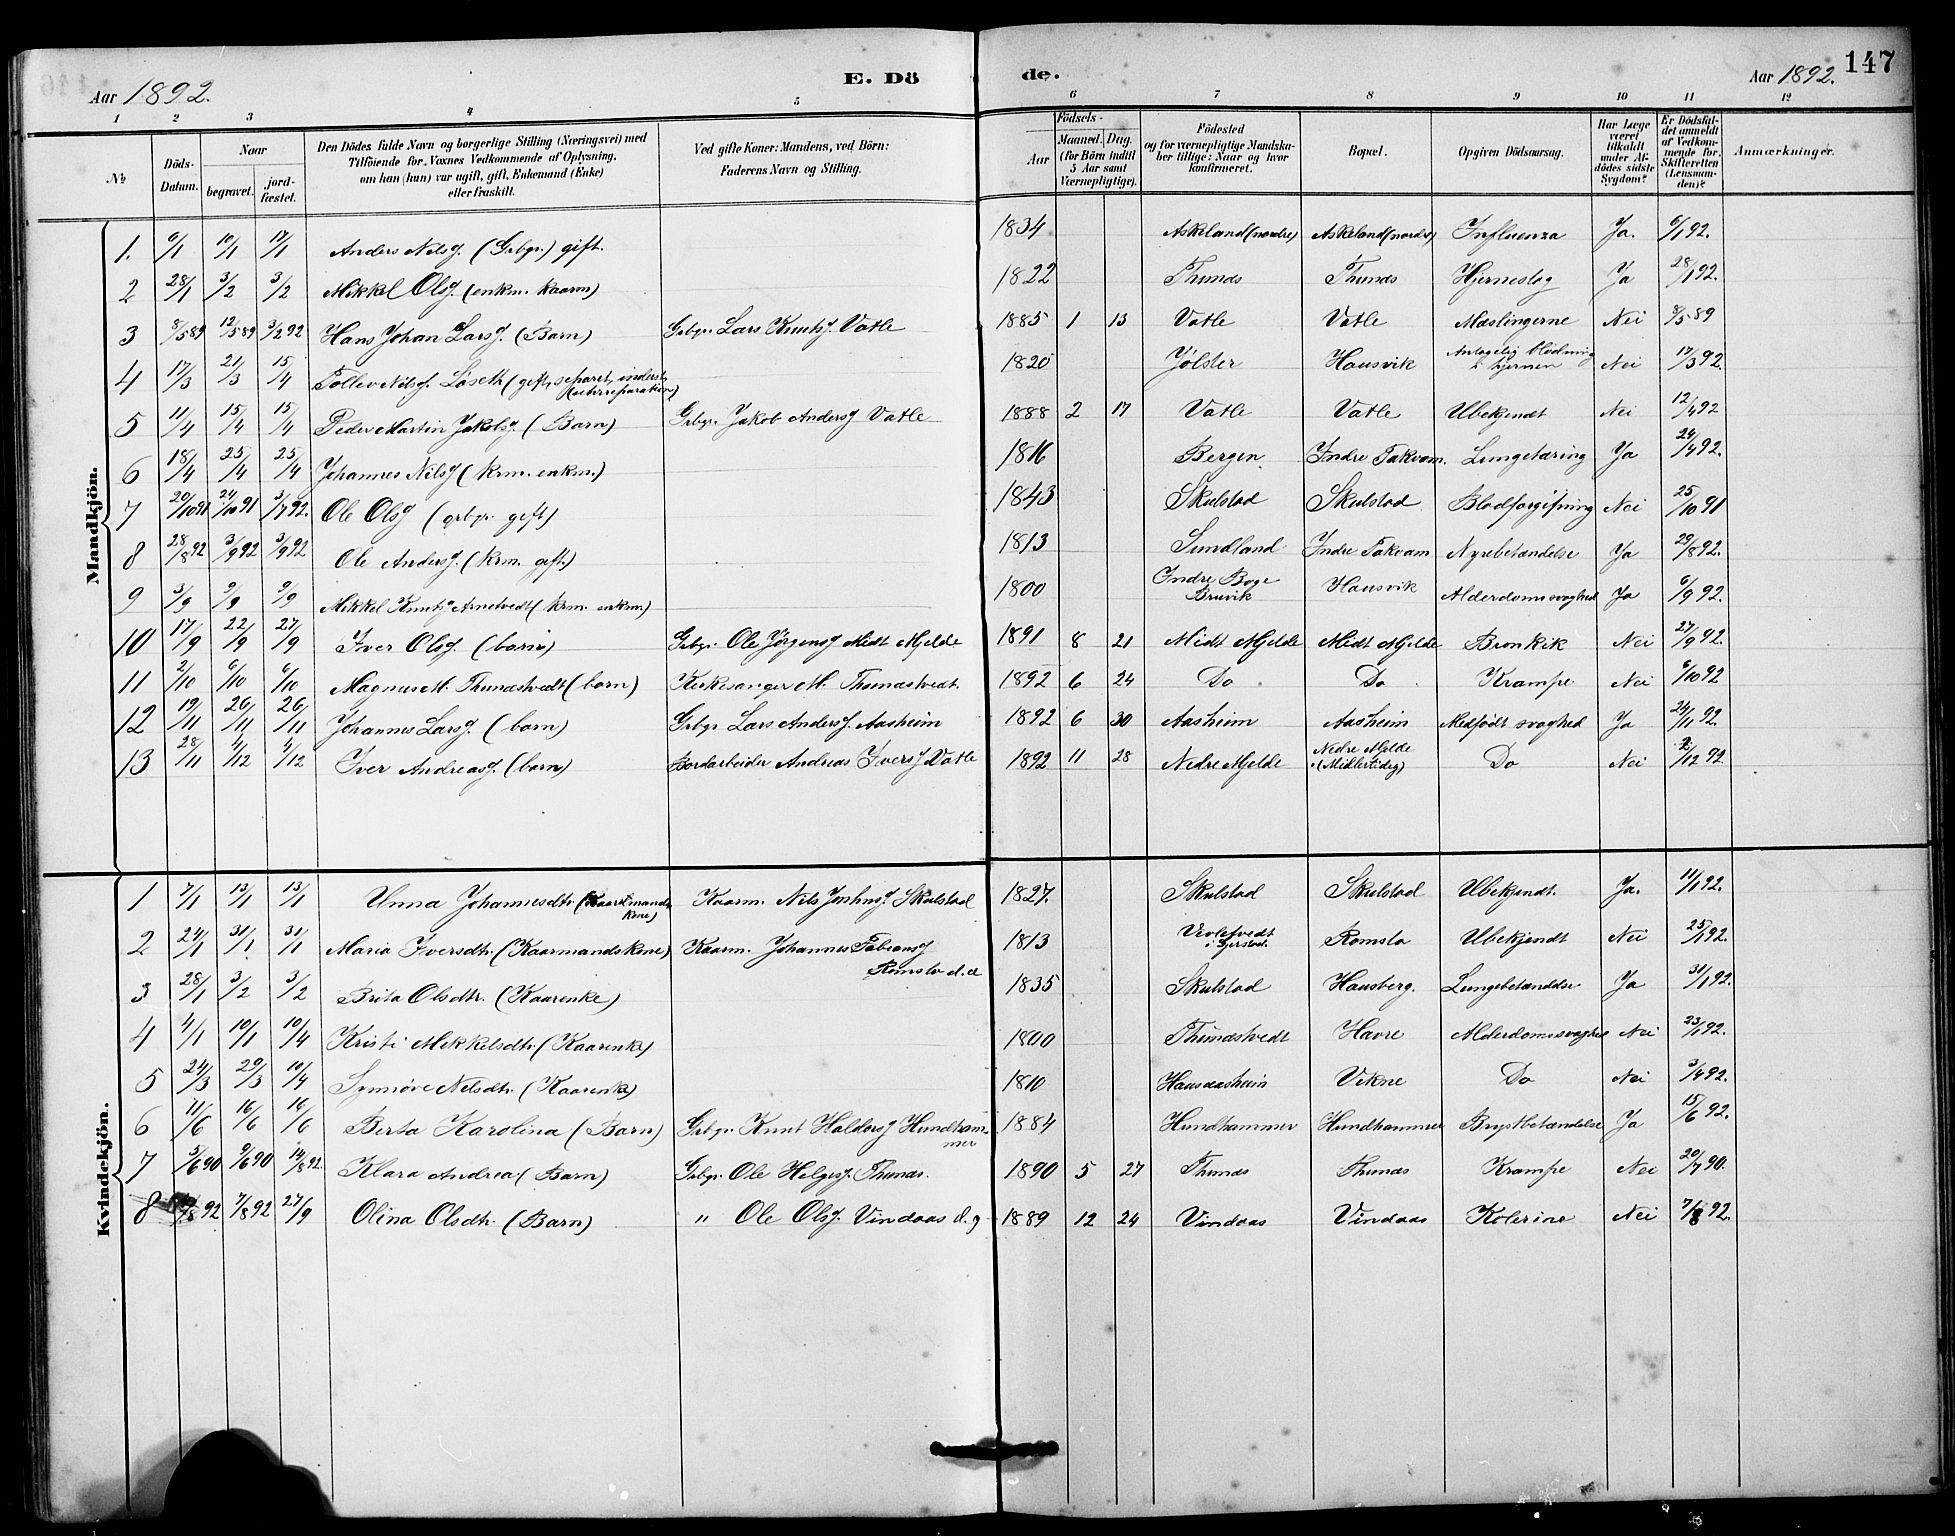 Aar 1892. E. Dö de. Aar 1892. 147
1 2 3 4 5 6 7 8 9 10 11 12
№ Döds-Datum. Naar begravet. jord-fæstet. Den Dödes fulde Navn og borgerlige Stilling (Næringsvei) med Tilföiende for Voxnes Vedkommende af Oplysning, om han (hun) var ugift, gift, Enkemand (Enke) eller fraskilt. Ved gifte Koner: Mandens, ved Börn: Faderens Navn og Stilling. Födsels- Aar Maaned. Dag. (for Börn indtil 5 Aar samt Værnepligtige). Födested og for værnepligtige Mandskaber tillige: Naar og hvor konfirmeret. Bopæl. Opgiven Dödsaarsag. Har Læge været tilkaldt under Afdödes sidste Sygdom? Er Dödsfaldet anmeldt af Vedkommende for Skifteretten (Lensmanden)? Anmærkninger.
Mandkjön.
1. 6/1 10/1 17/1 Anders Nilsg. (Grbgr.) gift. 1834 Askeland (nordre) Askeland (nordre) Influenza Ja. 6/1 92.
2 28/1 3/2 3/2 Mikkel Olsg. (enkm. kaarm) 1822 Thunæs Thunæs Hjerneslag Ja 28/1 92.
3 8/5 89 12/5 89 3/2 92 Hans Johan Larsg. (Barn) Grbgr. Lars Knutsg. Vatle 1885 1 13 Vatle Vatle Mæslingerne Nei 8/5 89
4 17/3 21/3 15/4 Tollev Nilsg. Löseth (gift, separet, inderst, 1820 Jölster Hausvik Antagelig blödning i hjernen Nei 17/3 92.
5 11/4 15/4 15/4 Peder Martin Jakobsg. (Barn) Grbgr. Jakob Andersg Vatle 1888 2 17 Vatle Vatle Ubekjendt Nei 12/4 92
6 18/4 25/4 25/4 Johannes Nilsg (krm. enkm.) 1816 Bergen Indre Takvam. Lungetæring Ja 24/4 92.
7 20/10 91 24/10 91 3/7 92. Ole Olsg (grbgr. gift) 1843 Skulstad Skulstad Blodforgiftning Nei 25/10 91
8 28/8 92 3/9 92 3/9 92 Ole Andersg. (krm. gift.) 1813 Sundland Indre Takvam Nyrebetændelse Ja 29/8 92.
9 3/9 9/9 9/9 Mikkel Knutsg Arnetvedt (krm. enkm.) 1800 Indre Boge Bruvik Hausvik Alderdomssvaghed Ja 6/9 92.
10 17/9 22/9 27/9 Iver Olsg. (barn) Grbgr. Ole Jörgensg Midt Mjelde 1891 8 21 Midt Mjelde Midt Mjelde Bronkik Nei 27/9 92.
11 2/10 6/10 6/10 Magnus M. Thunestvedt (barn) Kirkesanger M. Thunestvedt. 1892 6 24 Do Do Krampe Nei 6/10 92
12 19/11 26/11 26/11 Johannes Larsg. (barn) Grbgr Lars Andersg. Aasheim 1892 6 30 Aasheim Aasheim Medfödt svaghed Ja 24/11 92.
13 28/11 4/12 4/12 Iver Andreasg. (barn) Jordarbeider Andreas Iversg Vatle 1892 11 28 Nedre Mjelde Nedre Mjelde (Midlertidig) Do Nei 2/12 92.
Kvindekjön.
1 7/1 13/1 13/1 Unna Johannesdtr. Kaarm. Nils Skulstad 1827. Skulstad Skulstad Ubekjendt. Ja. 11/1 92.
2 24/1 31/1. 31/1 Maria Iversdtr. (Kaarmandskone) Kaarm. Johannes Fabiansg 1813 Romslo Ubekjendt Nei 25/1 92.
Romslo d.d
3 28/1 3/2 3/2 Brita Olsdtr. (Kaarenke) 1835 Skulstad Hausberg. Lungebetændelse Ja 31/1 92.
4 4/1 10/1 10/4 Kristi Mikkelsdtr. (Kaarenke) 1800 Thunestvedt Havre Alderdomssvaghed Nei 23/1 92.
5 24/3 29/3 10/4 Synnöve Nilsdtr. (Kaarenke) 1810 Hausaasheim Vikne Do Nei 3/4 92.
6 11/6 16/6 16/6 Berta Karolina (Barn) Grbgr. Knut Haldorsg Hundhammer 1884 Hundhammer Hundhammer Brystbetændelse Ja 15/6 92.
7 3/6 90 9/6 90 14/8 92. Klara Andrea (Barn) Grbgr. Ole Helgesg. Thunæs. 1890 5 27 Thunæs Thunæs Krampe Nei 20/7 90.
8 /8 92 7/8 92 27/9 Olina Olsdtr. (Barn) " Ole Olsg. Vindaas d.y 1889 12 24 Vindaas Vindaas Kolerine Nei 7/8 92.